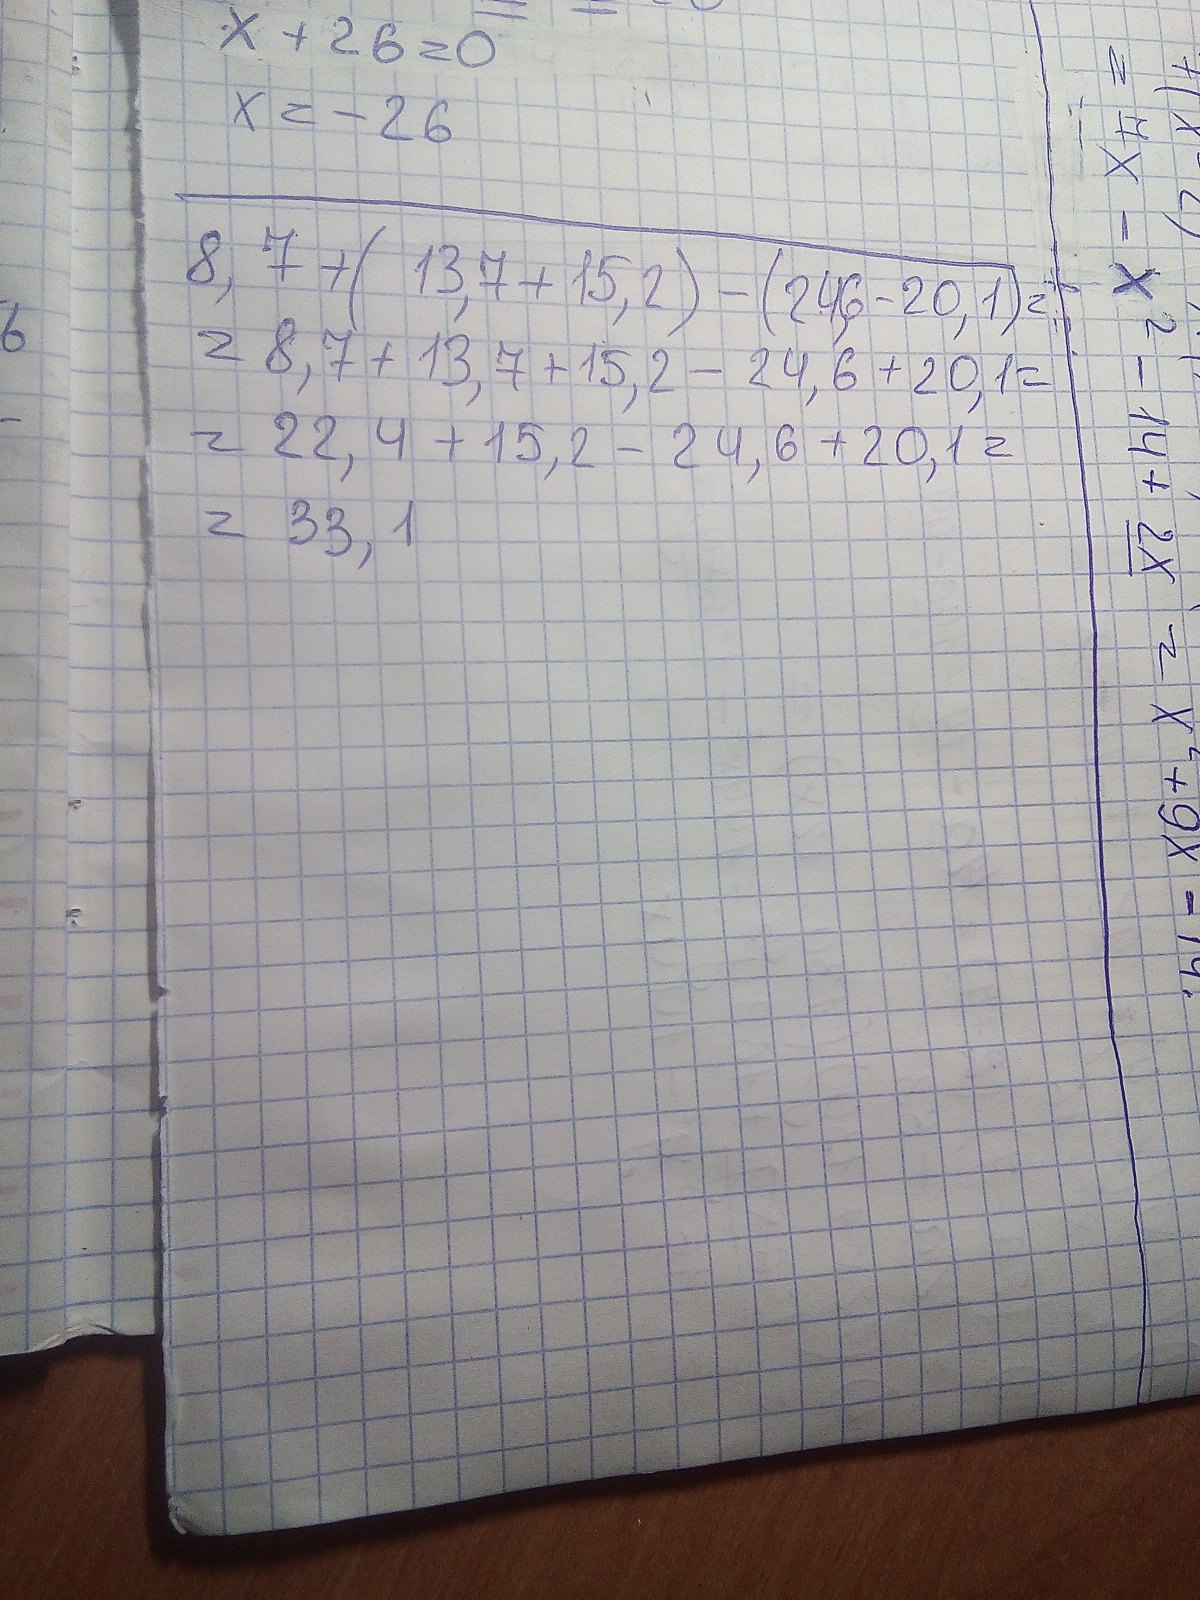 x + 26 = 0
x = - 26
8,7 + ( 13,7 + 15,2) - (24,6 - 20,1) =
= 8,7 + 13,7 + 15,2 - 24,6 + 20,1 =
= 22,4 + 15,2 - 24,6 + 20,1 =
= 33,1
= 7x - x² - 14 + 2x = x² + 9x - 14.
6
-